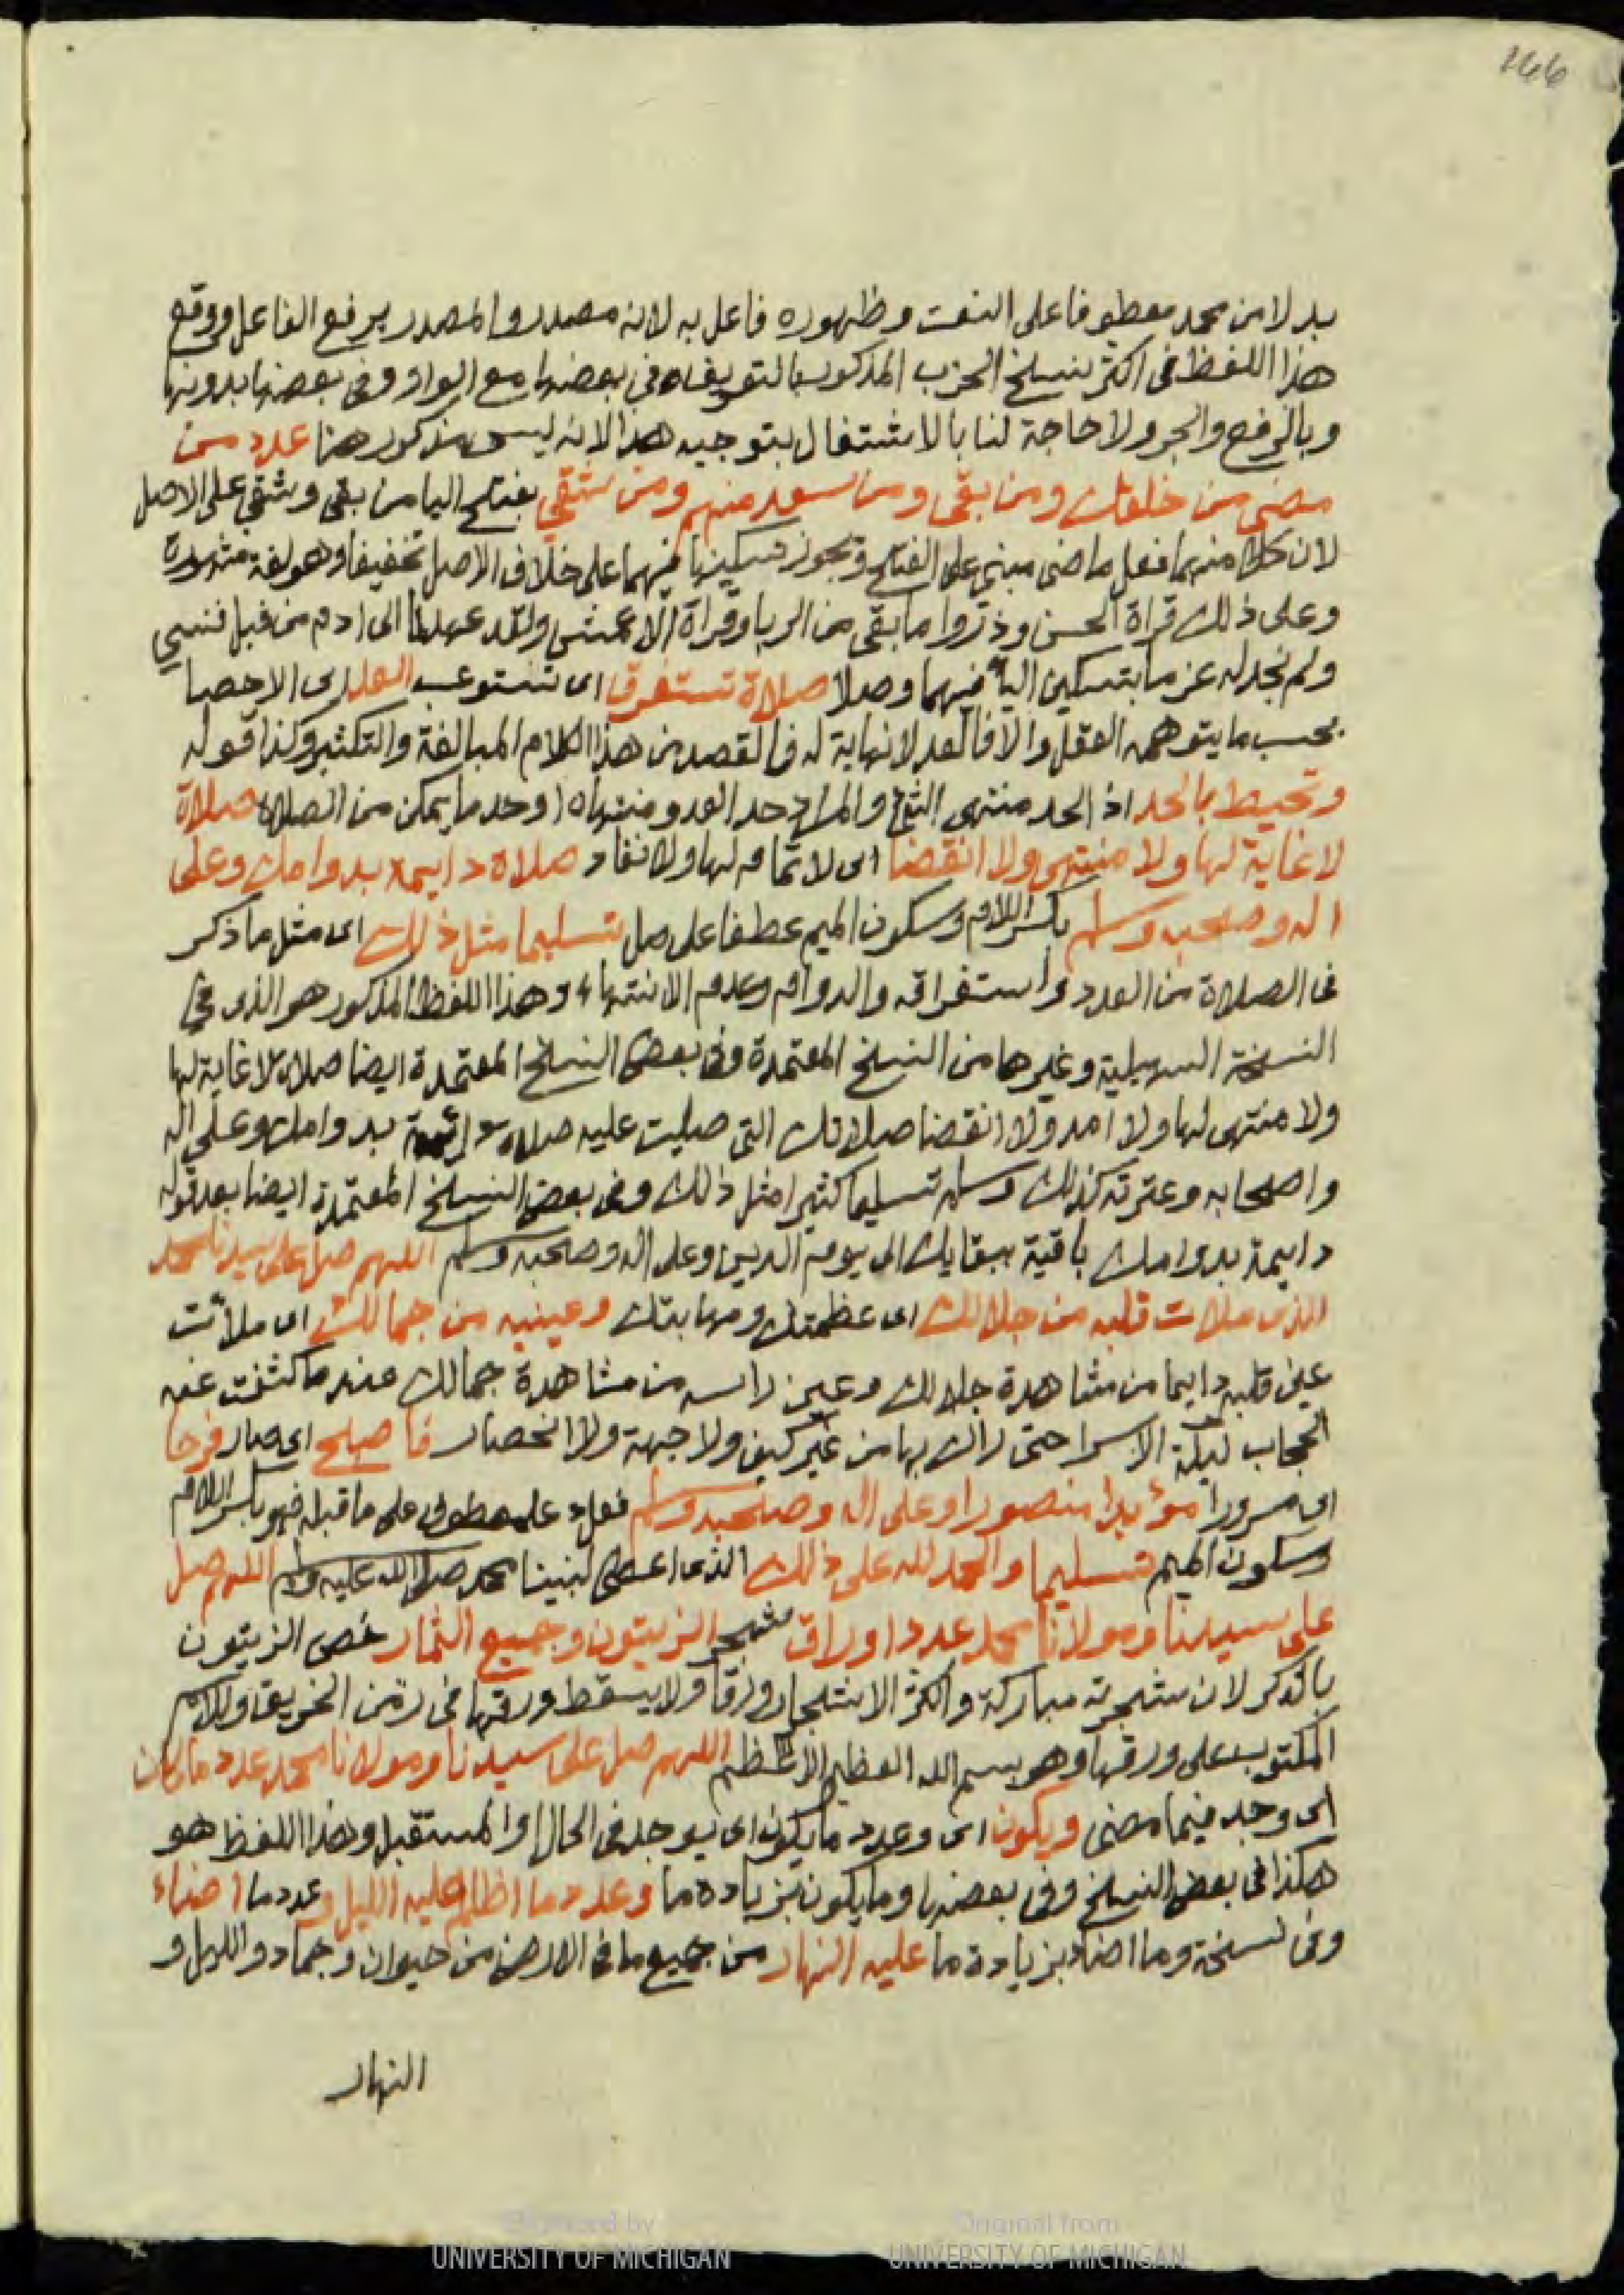 166
بدلا من محمد معطوفا على النعت وظهوره فاعل به لانه مصدر والمصدر يرفع الفاعل ووقع
هذا اللفظ فى اكثر نسخ الحزب المذكور بالتعريف فى بعضها مع الواو وفى بعضها بدونها
وبالرفع والجر ولا حاجة لنا بالاشتغال بتوجيه هذا لانه ليس مذكور هنا عدد من
مضى من خلقك ومن بقى ومن سعد منهم ومن شقى بفتح اليا من بقى وشقى على الاصل
لان كلا منهما فعل ماضى مبني على الفتح ويجوز تسكينها فيهما على خلاف الاصل تخفيفا وهو لغة مشهورة
وعلى ذلك قراة الحسن وذروا ما بقى من الربا وقراة الاعمش ولقد عهدنا الى ادم من قبل فنسي
ولم نجد له عزما بتسكين الياء فيهما وصلا صلاة تستغرق اى تستوعب العد اى الاحصا
بحسب ما يتوهمه العقل والا فالعد لا نهاية له فالقصد من هذا الكلام المبالغة والتكثير وكذا قوله
وتحيط بالحد اذ الحد منتهى الشئ والمراد حد العد ومنتهاه او حد ما يمكن من الصلاة صلاة
لا غاية لها ولا منتهى ولا انقضا اى لا تمام لها ولا نفاد صلاة دايمة بدوامك وعلى
اله وصحبه وسلم بكسر اللام وسكون الميم عطفا على صل تسليما مثل ذلك اى مثل ما ذكر
فى الصلاة من العدد واستغراقه والدوام وعدم الانتهاء وهذا اللفظ المذكور هو الذى فى
النسخة السهيلية وغيرها من النسخ المعتمدة وفى بعض النسخ المعتمدة ايضا صلاة لا غاية لها
ولا منتهى لها ولا امد ولا انقضا صلاتك التى صليت عليه صلاة دائمة بدوامك وعلى اله
واصحابه وعترته كذلك وسلم تسليما كثيرا مثل ذلك وفى بعض النسخ المعتمدة ايضا بعد قوله
دايمة بدوامك باقية ببقايك الى يوم الدين وعلى اله وصحبه وسلم اللهم صل على سيدنا محمد
الذى ملات قلبه من جلالك اى عظمتك ومهابتك وعينيه من جمالك اى ملأت
عين قلبه دايما من مشاهدة جلالك وعين راسه من مشاهدة جمالك عندما كشفت عنه
الحجاب ليلة الاسرا حتى راك بها من غير كيف ولا جهة ولا انحصار فاصبح اى صار فرحا
اى مسرورا مؤيدا منصورا وعلى اله وصحبه وسلم فعل دعا معطوف على ما قبله فهو بكسر اللام
وسكون الميم تسليما والحمد لله على ذلك الذى اعطى لنبينا محمد صلى الله عليه وسلم اللهم صل
على سيدنا ومولانا محمد عدد اوراق شجر الزيتون وجميع الثمار خص الزيتون
بالذكر لان شجرته مباركة واكثر الاشجار ورقا ولا يسقط ورقها فى زمن الخريف وللاسم
المكتوب على ورقها وهو بسم الله العظيم الاعظم اللهم صل على سيدنا ومولانا محمد عدد ما كان
اى وجد فيما مضى ويكون اى وعدد ما يكون اى يوجد فى الحال او المستقبل وهذا اللفظ هو
هكذا فى بعض النسخ وفى بعضها وما يكون بزيادة ما وعدد ما اظلم عليه الليل وعدد ما اضاء
وفى نسخة وما اضاء بزيادة ما عليه النهار من جميع ما فى الارض من حيوان وجماد والليل و
النهار
Digitized by
UNIVERSITY OF MICHIGAN
Original from
UNIVERSITY OF MICHIGAN